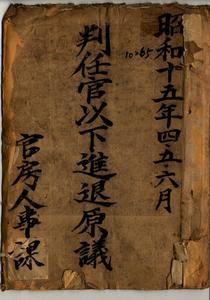 昭和十五年四·五·六月
10265
判任官以下進退原議
官房人事課